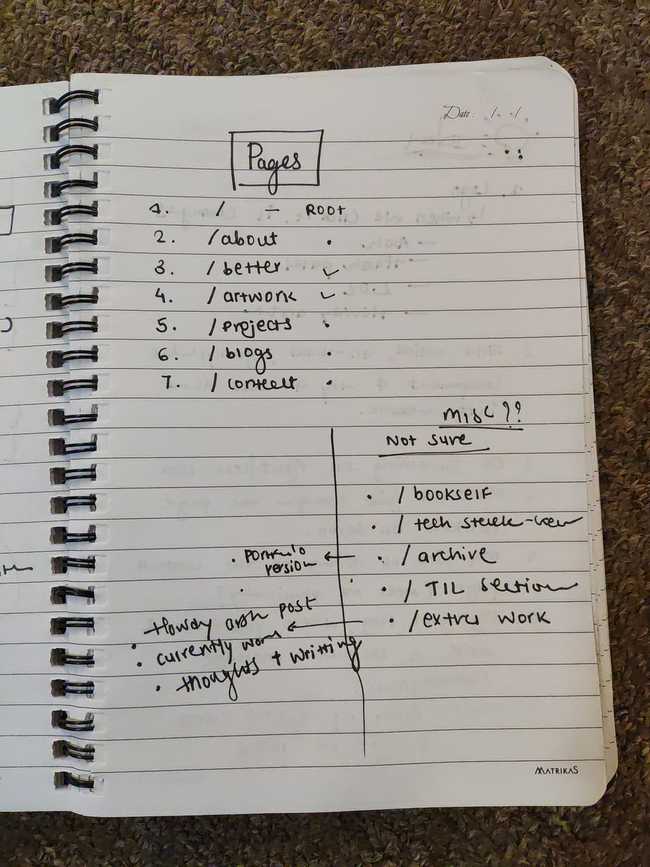 Date: / /
Pages
1. / — ROOT
2. /about .
3. /better ✓
4. /artwork ✓
5. /projects .
6. /blogs .
7. /contact .
misc ??
Not sure
. /bookself
. /tech stack-
. /archive
. portfolio version ←
. / TIL section
. /extra work
post
. currently work
. thoughts + writting
MATRIKAS